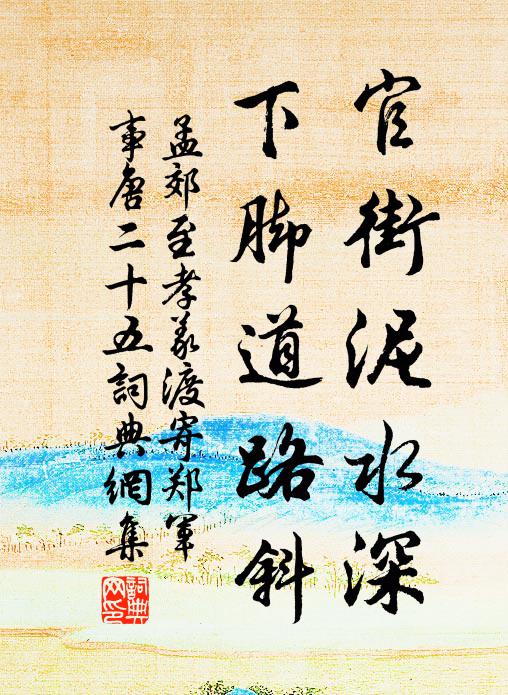 官街泥水深
下脚道路斜
孟郊至孝义渡寄郑军
事唐二十五詞典網集
詞典